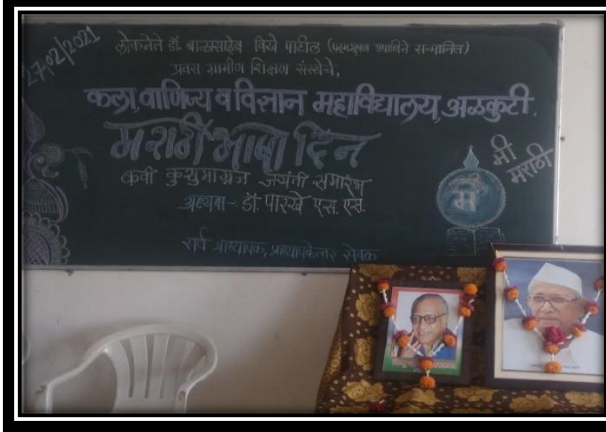 27/02/2021
लोकनेते डॉ. बाळासाहेब विखे पाटील (पद्मभूषण उपाधीने सन्मानित)
प्रवरा ग्रामीण शिक्षण संस्थेचे,
कला, वाणिज्य व विज्ञान महाविद्यालय, अळकुटी.
मराठी भाषा दिन
कवी कुसुमाग्रज जयंती समारंभ
अध्यक्ष - डॉ. पारखे एस. एस.
सर्व प्राध्यापक, प्राध्यापकेत्तर सेवक
मी
मराठी
म